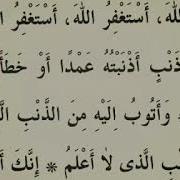 اللهَ، أَسْتَغْفِرُ اللهَ، أَسْتَغْفِرُ
ذَنْبٍ أَذْنَبْتُهُ عَمْدًا أَوْ خَطَأً
وَأَتُوبُ اِلَيْهِ مِنَ الذَّنْبِ
الَّذى لاَ أَعْلَمُ ٭ اِنَّكَ